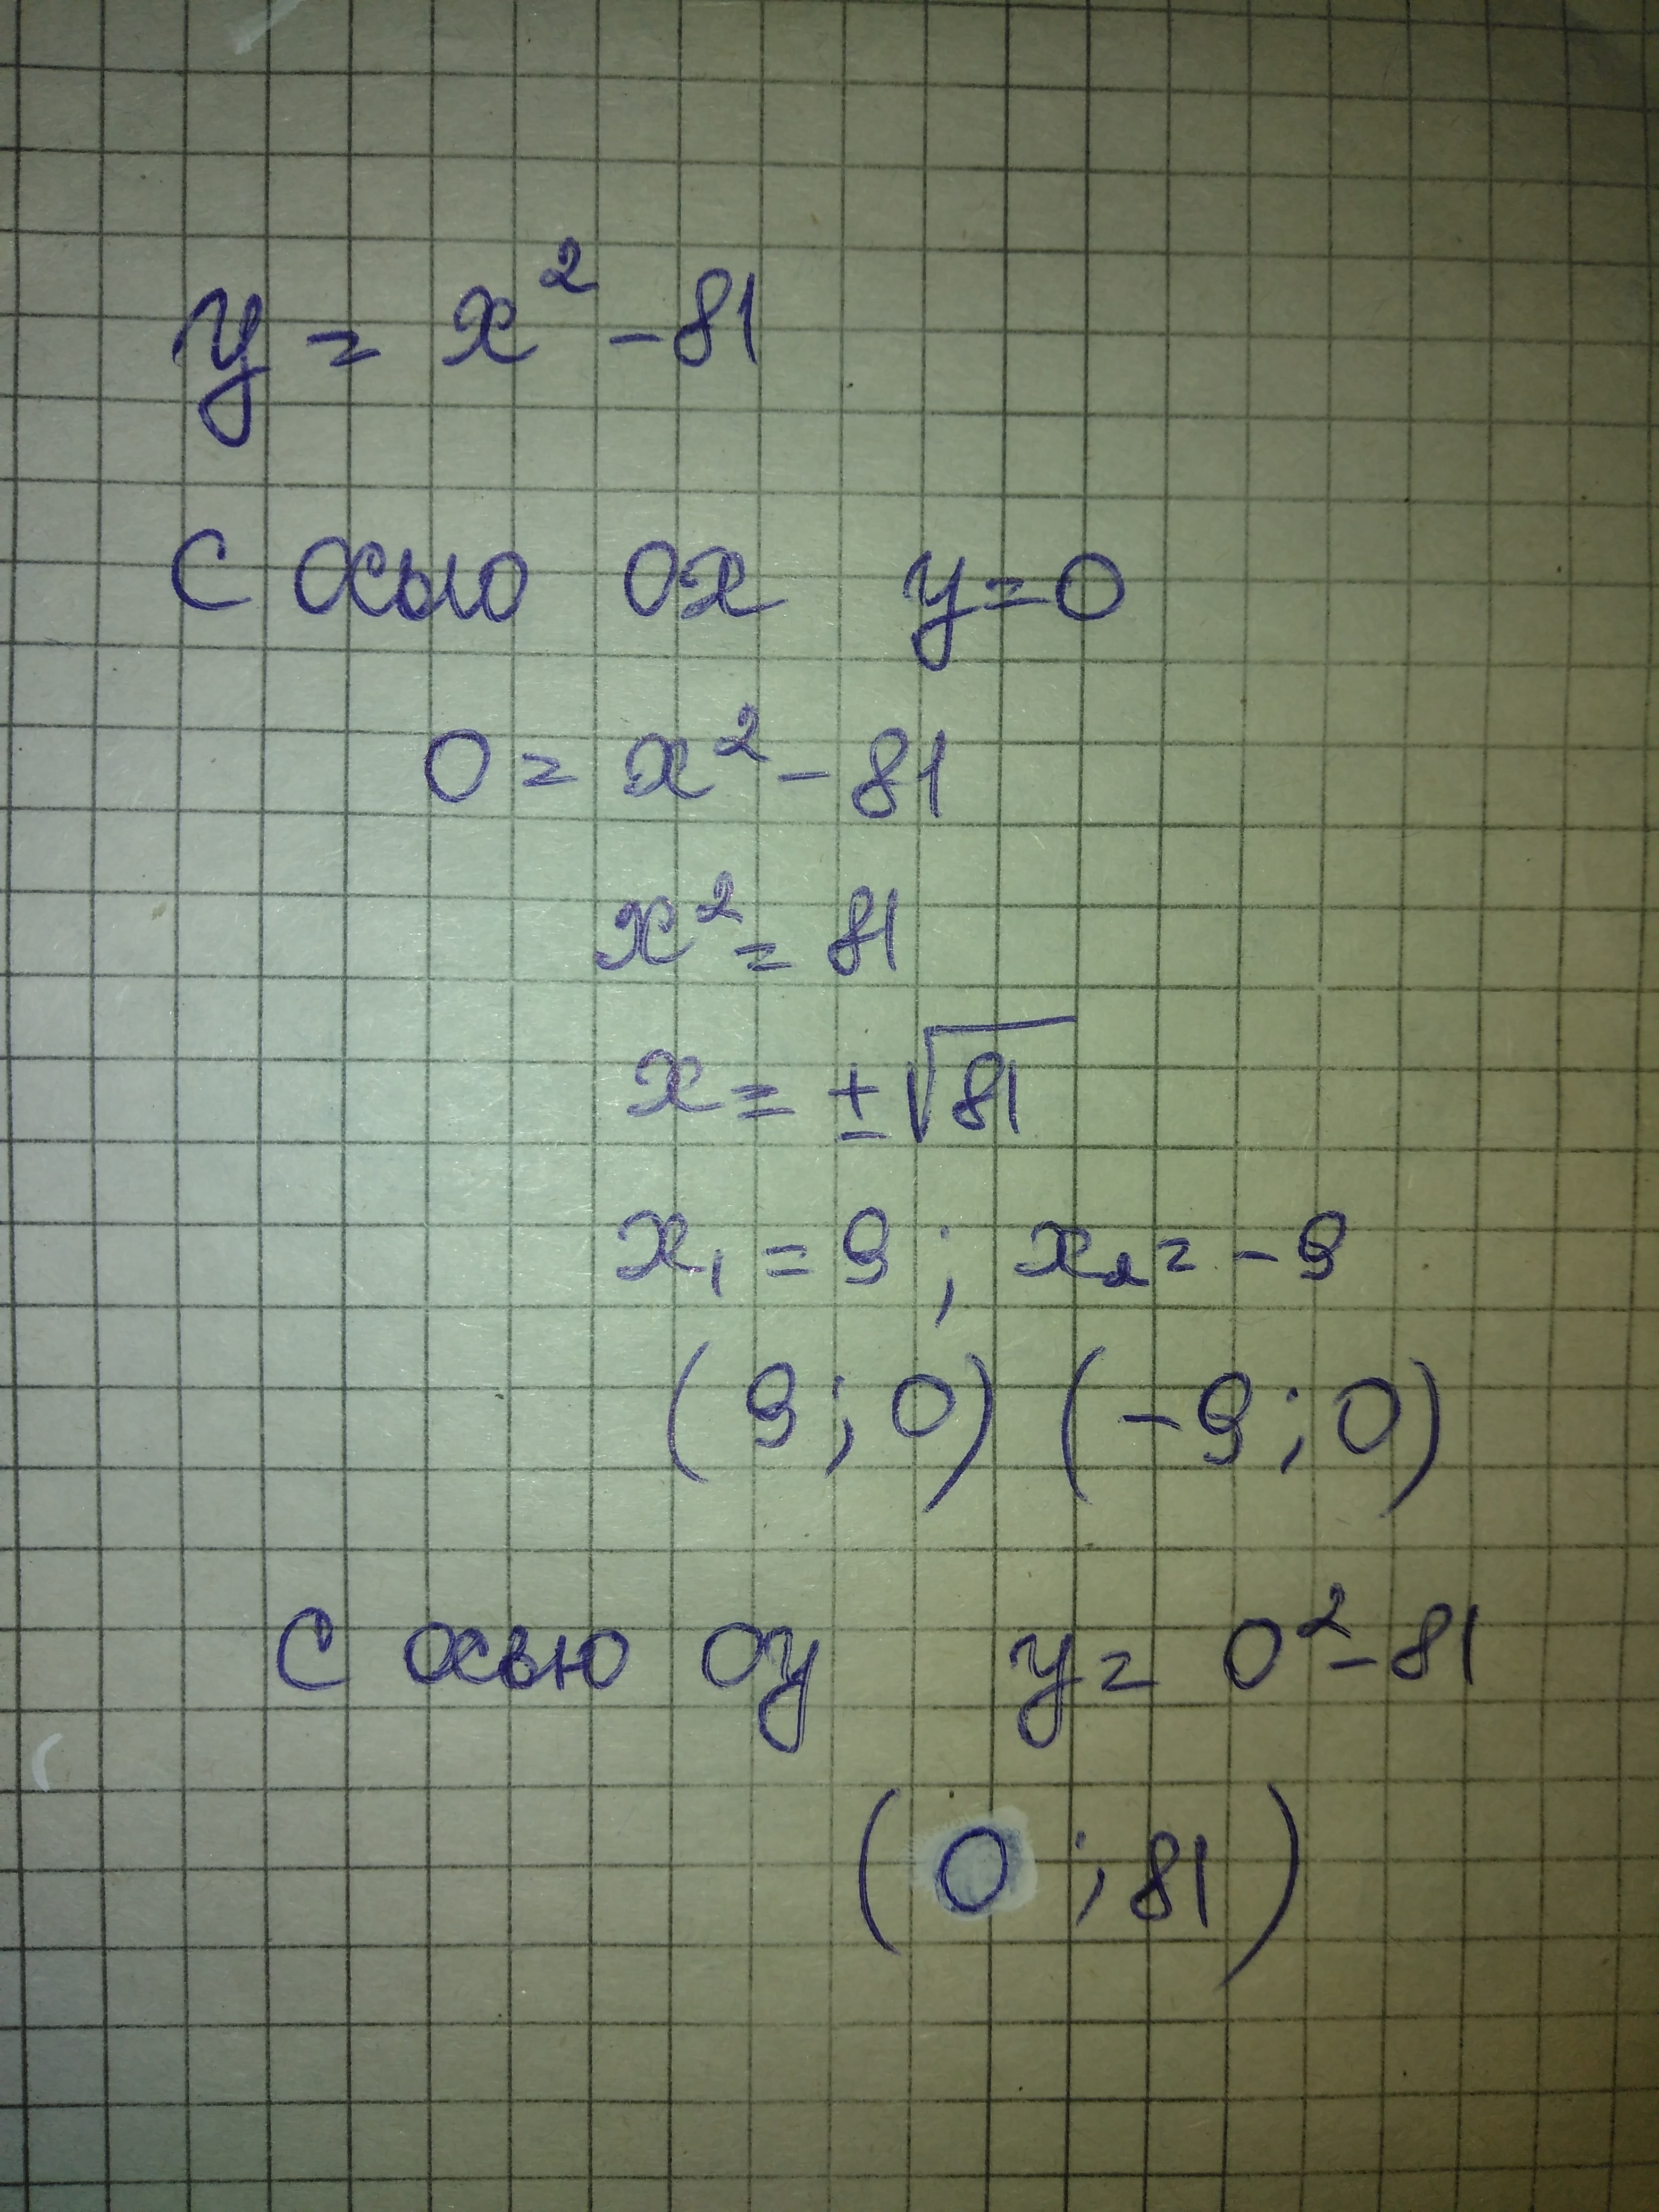 y = x² - 81
С осью Ox y = 0
0 = x² - 81
x² = 81
x = ±√81
x₁ = 9; x₂ = -9
(9; 0) (-9; 0)
С осью Oy y = 0² - 81
(0; 81)